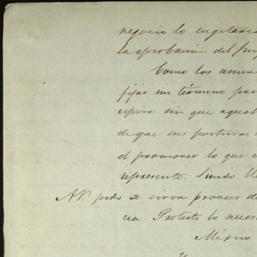 negocio lo sugetará
la aprobacion del Jui
Como los
fijar un término par
espira sin que aquel
de que sus posturas
el promover lo que
represento. Siendo U
A V. pido se sirva proveer de
cia. Protesto lo neces
México